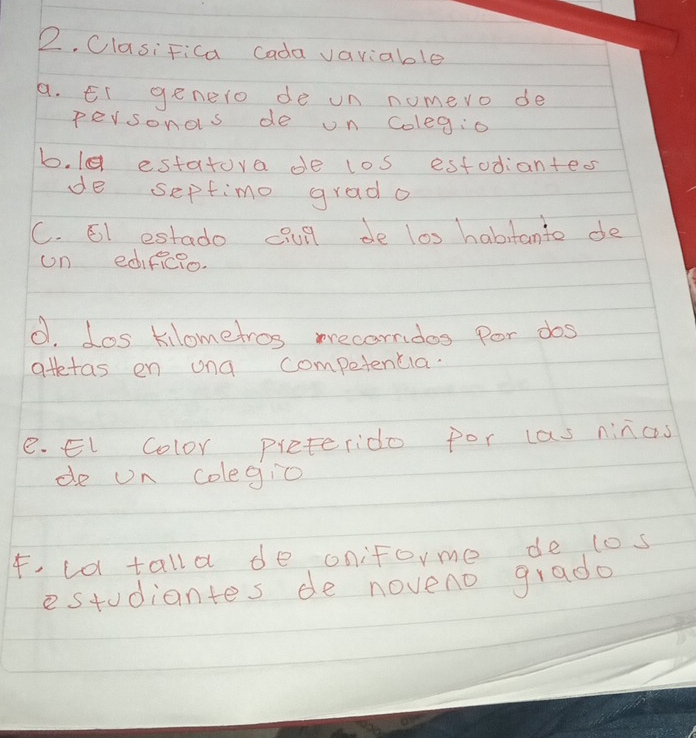 2. Clasifica cada variable
a. El genero de un numero de
personas de un colegio
b. la estatura de los estudiantes
de septimo grado
C. El estado civil de los habitante de
un edificio.
d. Los kilometros recorridos por dos
atletas en una competencia.
e. El color preferido por las niñas
de un colegio
F. La talla de uniforme de los
estudiantes de noveno grado